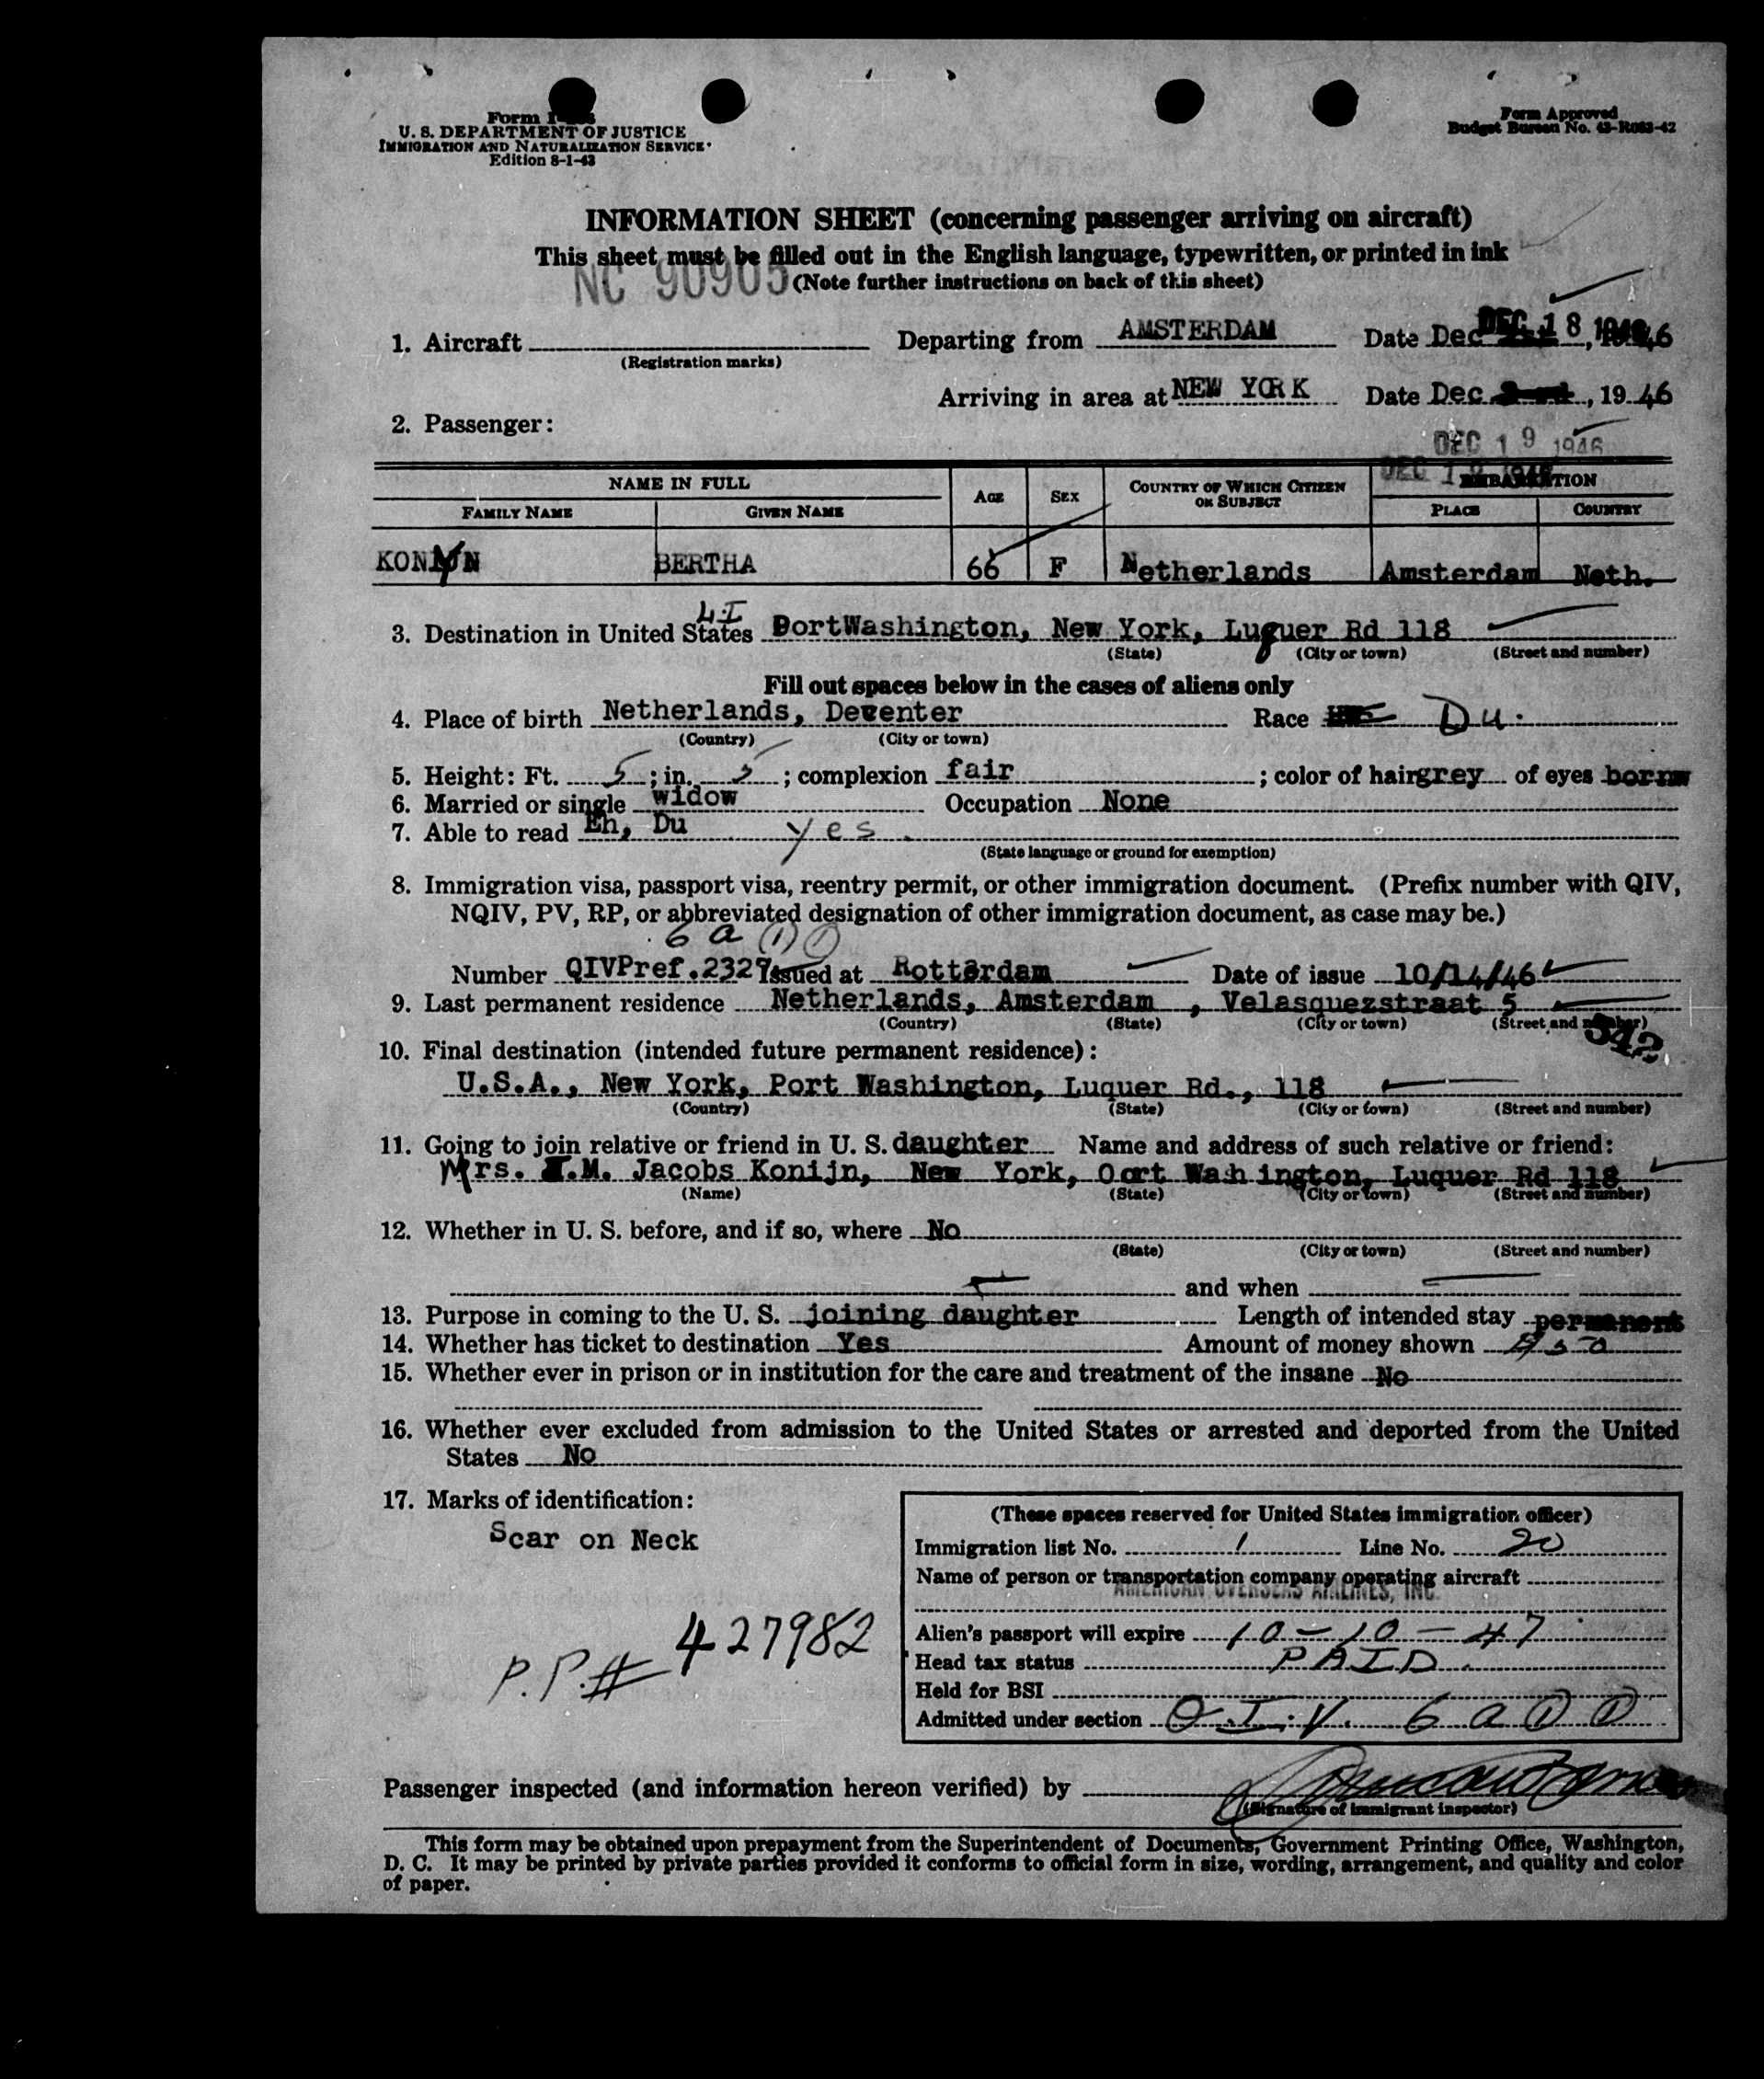 Form I-
U. S. DEPARTMENT OF JUSTICE
IMMIGRATION AND NATURALIZATION SERVICE
Edition 8-1-43
Form Approved
Budget Bureau No. 43-R083-42
INFORMATION SHEET (concerning passenger arriving on aircraft)
This sheet must be filled out in the English language, typewritten, or printed in ink
NC 90905
(Note further instructions on back of this sheet)
1. Aircraft Departing from AMSTERDAM Date Dec DEC 18 1946, 1946
(Registration marks)
Arriving in area at NEW YORK Date Dec , 19 46
2. Passenger:
DEC 19 1946
DEC 1 1946
NAME IN FULL AGE SEX COUNTRY OF WHICH CITIZEN OR SUBJECT EMBARKATION
FAMILY NAME GIVEN NAME PLACE COUNTRY
KONYN BERTHA 66 F Netherlands Amsterdam Neth.
L.I
3. Destination in United States PortWashington, New York, Luquer Rd 118
(State) (City or town) (Street and number)
Fill out spaces below in the cases of aliens only
4. Place of birth Netherlands, Deventer Race Du.
(Country) (City or town)
5. Height: Ft. 5 ; in. 5 ; complexion fair ; color of hair grey of eyes bornw
6. Married or single widow Occupation None
7. Able to read En, Du yes
(State language or ground for exemption)
8. Immigration visa, passport visa, reentry permit, or other immigration document. (Prefix number with QIV,
NQIV, PV, RP, or abbreviated designation of other immigration document, as case may be.)
6 a (1) (1)
Number QIVPref.2327 Issued at Rotterdam Date of issue 10/14/46
9. Last permanent residence Netherlands, Amsterdam , Velasquezstraat 5
(Country) (State) (City or town) (Street and number)
342
10. Final destination (intended future permanent residence):
U.S.A., New York, Port Washington, Luquer Rd., 118
(Country) (State) (City or town) (Street and number)
11. Going to join relative or friend in U. S. daughter Name and address of such relative or friend:
Mrs. .M. Jacobs Konijn, New York, Oort Wash ington, Luquer Rd 118
(Name) (State) (City or town) (Street and number)
12. Whether in U. S. before, and if so, where No
(State) (City or town) (Street and number)
and when
13. Purpose in coming to the U. S. joining daughter Length of intended stay permanent
14. Whether has ticket to destination Yes Amount of money shown
15. Whether ever in prison or in institution for the care and treatment of the insane No
16. Whether ever excluded from admission to the United States or arrested and deported from the United
States No
17. Marks of identification:
Scar on Neck
P.P.# 427982
(These spaces reserved for United States immigration officer)
Immigration list No. 1 Line No. 20
Name of person or transportation company operating aircraft
AMERICAN OVERSEAS AIRLINES, INC.
Alien's passport will expire 10-10-47
Head tax status PAID
Held for BSI
Admitted under section Q.I.V. 6 a (1) (1)
Passenger inspected (and information hereon verified) by
(Signature of immigrant inspector)
This form may be obtained upon prepayment from the Superintendent of Documents, Government Printing Office, Washington,
D. C. It may be printed by private parties provided it conforms to official form in size, wording, arrangement, and quality and color
of paper.